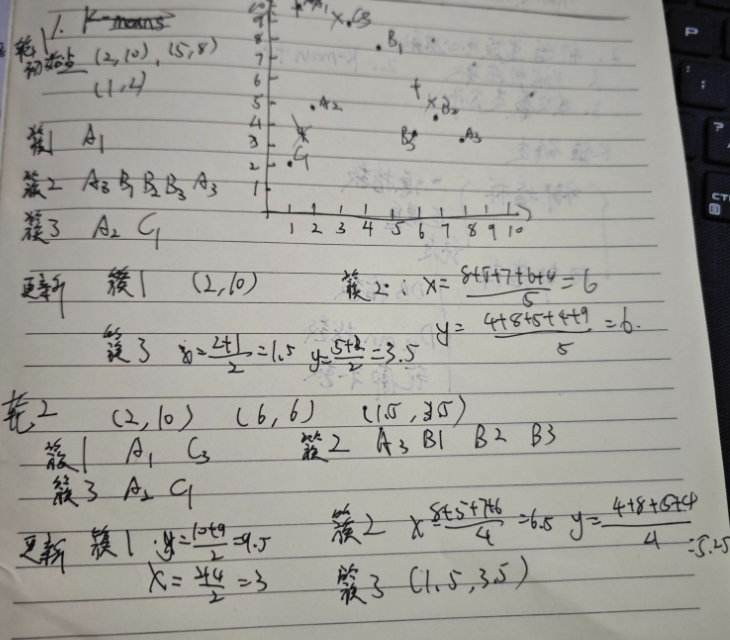 1. K-means
初始点 (2,10), (5,8)
(1,2)
簇1 A1
簇2 A3 B1 B2 B3 A3
簇3 A2 C1
10
9
8
7
6
5
4
3
2
1
1 2 3 4 5 6 7 8 9 10
A1
C3
B1
A2
B2
B3
A3
C1
更新 簇1 (2,10) 簇2: x= 8+5+7+6+4 / 5 =6
y= 4+8+5+4+9 / 5 =6.
簇3 x= 2+1 / 2 =1.5 y= 5+2 / 2 =3.5
轮2 (2,10) (6,6) (1.5, 3.5)
簇1 A1 C3 簇2 A3 B1 B2 B3
簇3 A2 C1
更新 簇1 y= 10+9 / 2 =9.5 簇2 x= 8+5+7+6 / 4 =6.5 y= 4+8+5+4 / 4 =5.25
x= 2+4 / 2 =3 簇3 (1.5, 3.5)
P
?
A
CT